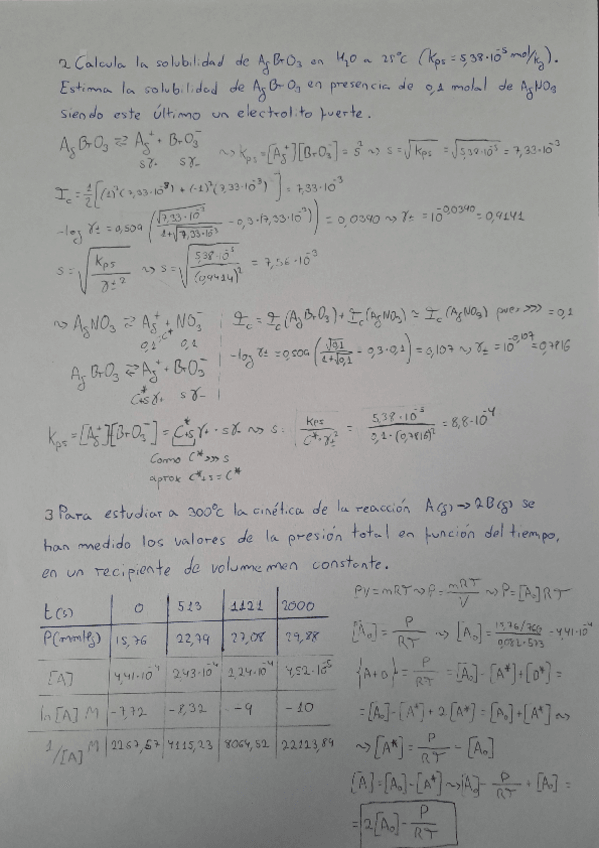 2 Calcula la solubilidad de AgBrO₃ en H₂O a 25°C (kps = 5,38·10⁻⁵ mol/kg).
Estima la solubilidad de AgBrO₃ en presencia de 0,1 molal de AgNO₃
siendo este último un electrolito fuerte.
AgBrO₃ ⇄ Ag⁺ + BrO₃⁻ ~> kps = [Ag⁺][BrO₃⁻] = s² ~> s = √kps = √5,38·10⁻⁵ = 7,33·10⁻³
sγ₋ sγ₋
I_c = 1/2 [(1)²(7,33·10⁻³) + (-1)²(7,33·10⁻³)] = 7,33·10⁻³
-log γ± = 0,509 (√7,33·10⁻³ / 1+√7,33·10⁻³ - 0,3·(7,33·10⁻³)) = 0,0390 ~> γ± = 10^-0,0390 = 0,9141
s = √(kps / γ±²) ~> s = √(5,38·10⁻⁵ / (0,9414)²) = 7,56·10⁻³
~> AgNO₃ ⇄ Ag⁺ + NO₃⁻
0,1 0,1
I_c = I_c(AgBrO₃) + I_c(AgNO₃) ≃ I_c(AgNO₃) pues >>> = 0,1
AgBrO₃ ⇄ Ag⁺ + BrO₃⁻
C*+s γ± sγ₋
-log γ± = 0,509 (√0,1 / 1+√0,1 - 0,3·0,1) = 0,107 ~> γ± = 10^-0,107 = 0,7816
kps = [Ag⁺][BrO₃⁻] = C*+s γ± · sγ₋ ~> s = kps / C*·γ±² = 5,38·10⁻⁵ / 0,1·(0,7816)² = 8,8·10⁻⁴
Como C* >>> s
aprox C*+s = C*
3 Para estudiar a 300°C la cinética de la reacción A(g) → 2B(g) se
han medido los valores de la presión total en función del tiempo,
en un recipiente de volumemen constante.
t(s) 0 513 1121 2000
P(mmHg) 15,76 22,79 27,08 29,88
[A] 4,41·10⁻⁴ 2,43·10⁻⁴ 1,24·10⁻⁴ 4,52·10⁻⁵
ln[A] M -7,72 -8,32 -9 -10
1/[A] M 2267,57 4115,23 8064,52 22123,89
PV = nRT ~> P = nRT/V ~> P = [A₀]RT
[A₀] = P/RT ~> [A₀] = 15,76/760 / 0,082·573 = 4,41·10⁻⁴
[A+B] = P/RT = [A₀] - [A*] + [B*] =
= [A₀] - [A*] + 2[A*] = [A₀] + [A*] ~>
~> [A*] = P/RT - [A₀]
[A] = [A₀] - [A*] ~> [A₀] - P/RT + [A₀] =
= 2[A₀] - P/RT